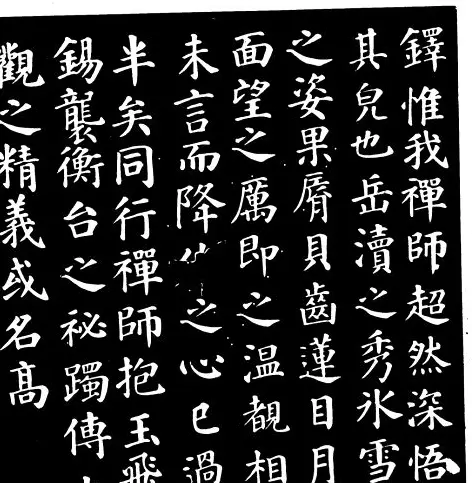 鐸惟我禪師超然深悟
其皃也岳瀆之秀氷雪
之姿果脣貝齒蓮目月
面望之厲即之温覩相
未言而降之心已過
半矣同行禪師抱玉飛
錫襲衡台之祕躅傳
觀之精義或名髙